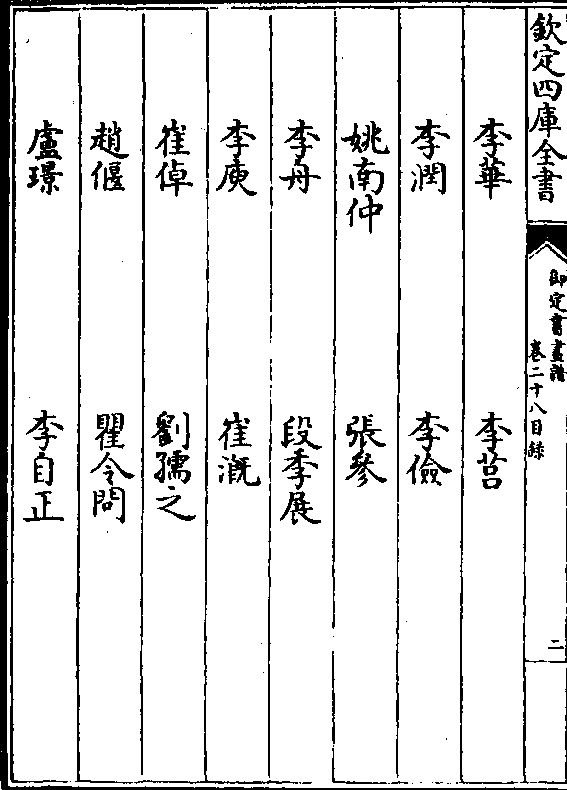 欽定四庫全書
御定書畫譜
卷二十八目錄
二
李華 李莒
李潤 李儉
姚南仲 張參
李舟 段季展
李庾 崔溉
崔倬 劉孺之
趙偃 瞿令問
盧璟 李自正